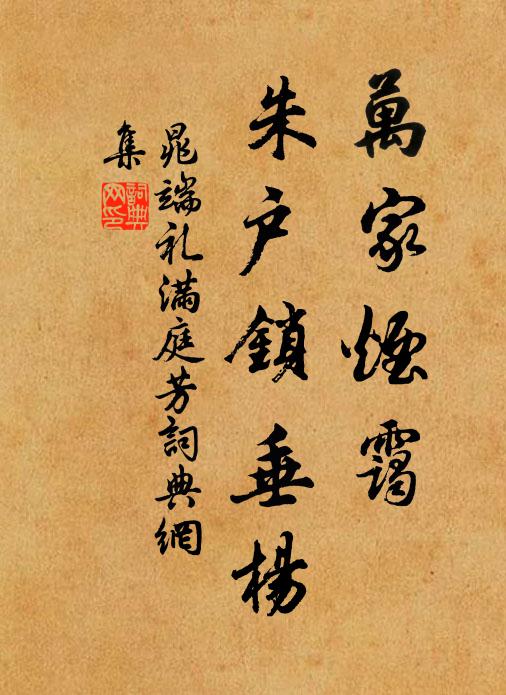 萬家煙靄
朱户鎖垂楊
晁端礼滿庭芳詞典網
集
詞典
网印